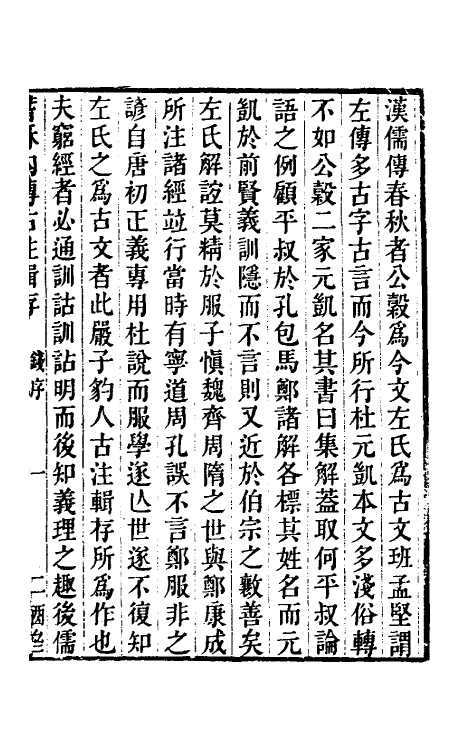 漢儒傳春秋者公穀爲今文左氏爲古文班孟堅謂
左傳多古字古言而今所行杜元凱本文多淺俗轉
不如公穀二家元凱名其書曰集解蓋取何平叔論
語之例顧平叔於孔包馬鄭諸解各標其姓名而元
凱於前賢義訓隱而不言則又近於伯宗之斁善矣
左氏解誼莫精於服子愼魏齊周隋之世與鄭康成
所注諸經竝行當時有寧道周孔誤不言鄭服非之
諺自唐初正義專用杜說而服學遂亾世遂不復知
左氏之爲古文者此嚴子豹人古注輯存所爲作也
夫窮經者必通訓詁訓詁明而後知義理之趣後儒
春秋內傳古注輯存 錢序 一 二酉